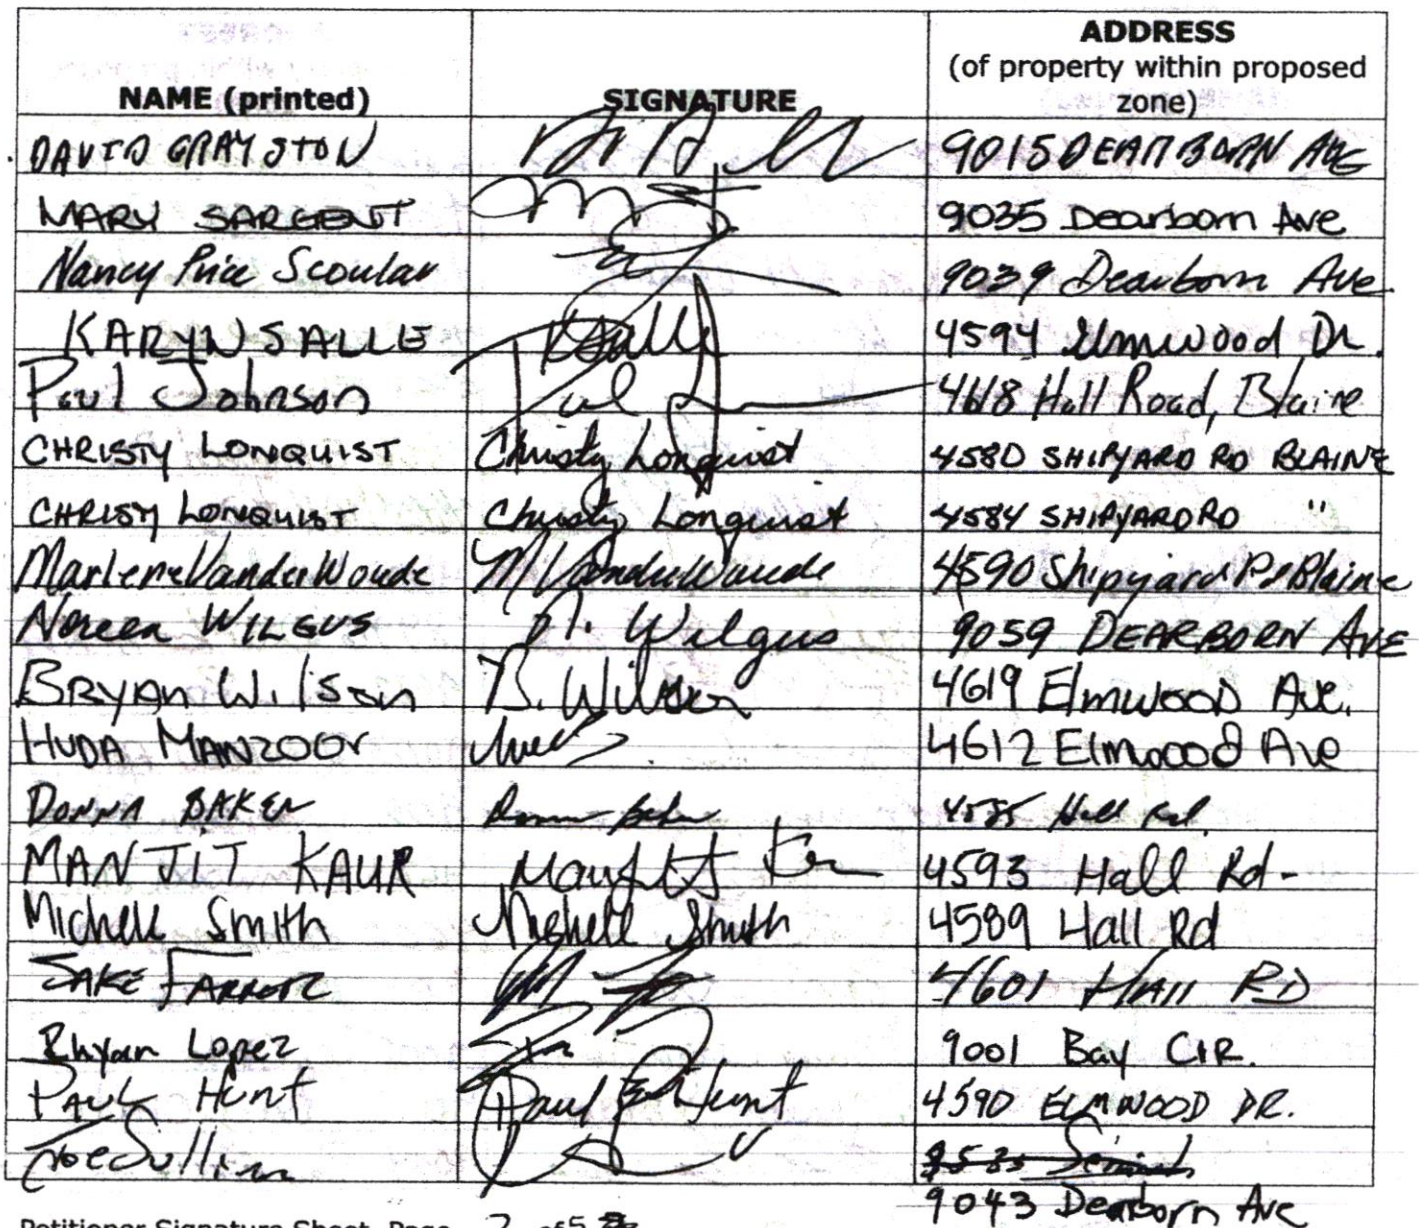 NAME (printed) SIGNATURE ADDRESS
(of property within proposed
zone)
DAVID GRAYSTON 9015 DEARBORN AVE
MARY SARGENT 9035 Dearborn Ave
Nancy Price Scoular 9039 Dearborn Ave.
KARYN SALLE KSalle 4594 Elmwood Dr.
Paul Johnson Paul J 4618 Hall Road, Blaine
CHRISTY LONQUIST Christy Lonquist 4580 SHIPYARD RD BLAINE
CHRISTY LONQUIST Christy Lonquist 4584 SHIPYARD RD "
Marlene VanderWoude M VanderWoude 4590 Shipyard Rd Blaine
Noreen WILGUS N. Wilgus 9059 DEARBORN AVE
BRYAN Wilson B. Wilson 4619 Elmwood Ave.
HUDA MANZOOR 4612 Elmwood Ave
DONNA BAKER Donna Baker 4585 Hall Rd.
MANJIT KAUR Manjit Kr 4593 Hall Rd-
Michell Smith Mishell Smith 4589 Hall Rd
JAKE 4601 HALL RD
Rhyan Lopez 9001 Bay CIR.
PAUL HUNT Paul E Hunt 4590 ELMWOOD DR.
Joe Sullivan
9043 Dearborn Ave
Petitioner Signature Sheet, Page 2 of 5